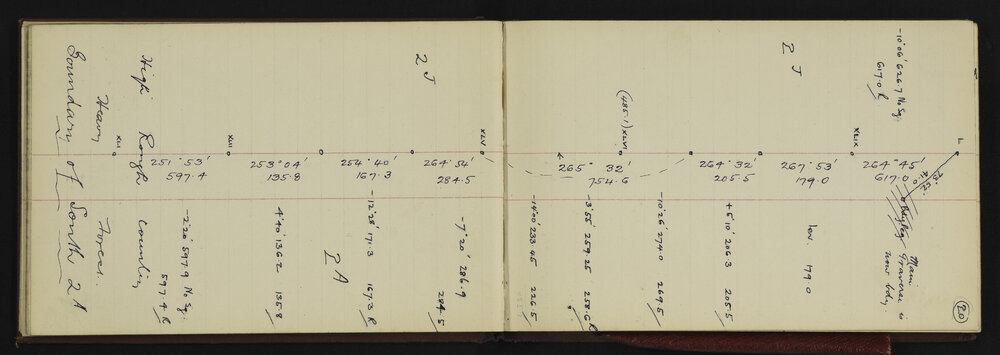 20
L
73° 52'
71.0
264° 45'
617.0
-10° 06' 626.7 No Sg.
617.0 R
Main
Traverse is
now bdy.
XLIX
267° 53'
179.0
lev. 179.0
2 J
264° 32'
205.5
+5° 10' 206.3 205.5
265° 32'
754.6
-10° 26' 274.0 269.5
(485.1) XLVI
-3° 55' 259.25 258.6 R
-14° 00' 233.45 226.5
XLV
264° 54'
284.5
-7° 20' 286.9
284.5
2 J
254° 40'
167.3
-12° 28' 171.3 167.3 R
2 A
253° 04'
135.8
4° 40' 136.2 135.8
XLII
251° 53'
597.4
-2° 20' 597.9 No Sg.
597.4 R
XLI
High Rough Country
Heavy Forest.
Boundary of South 2A